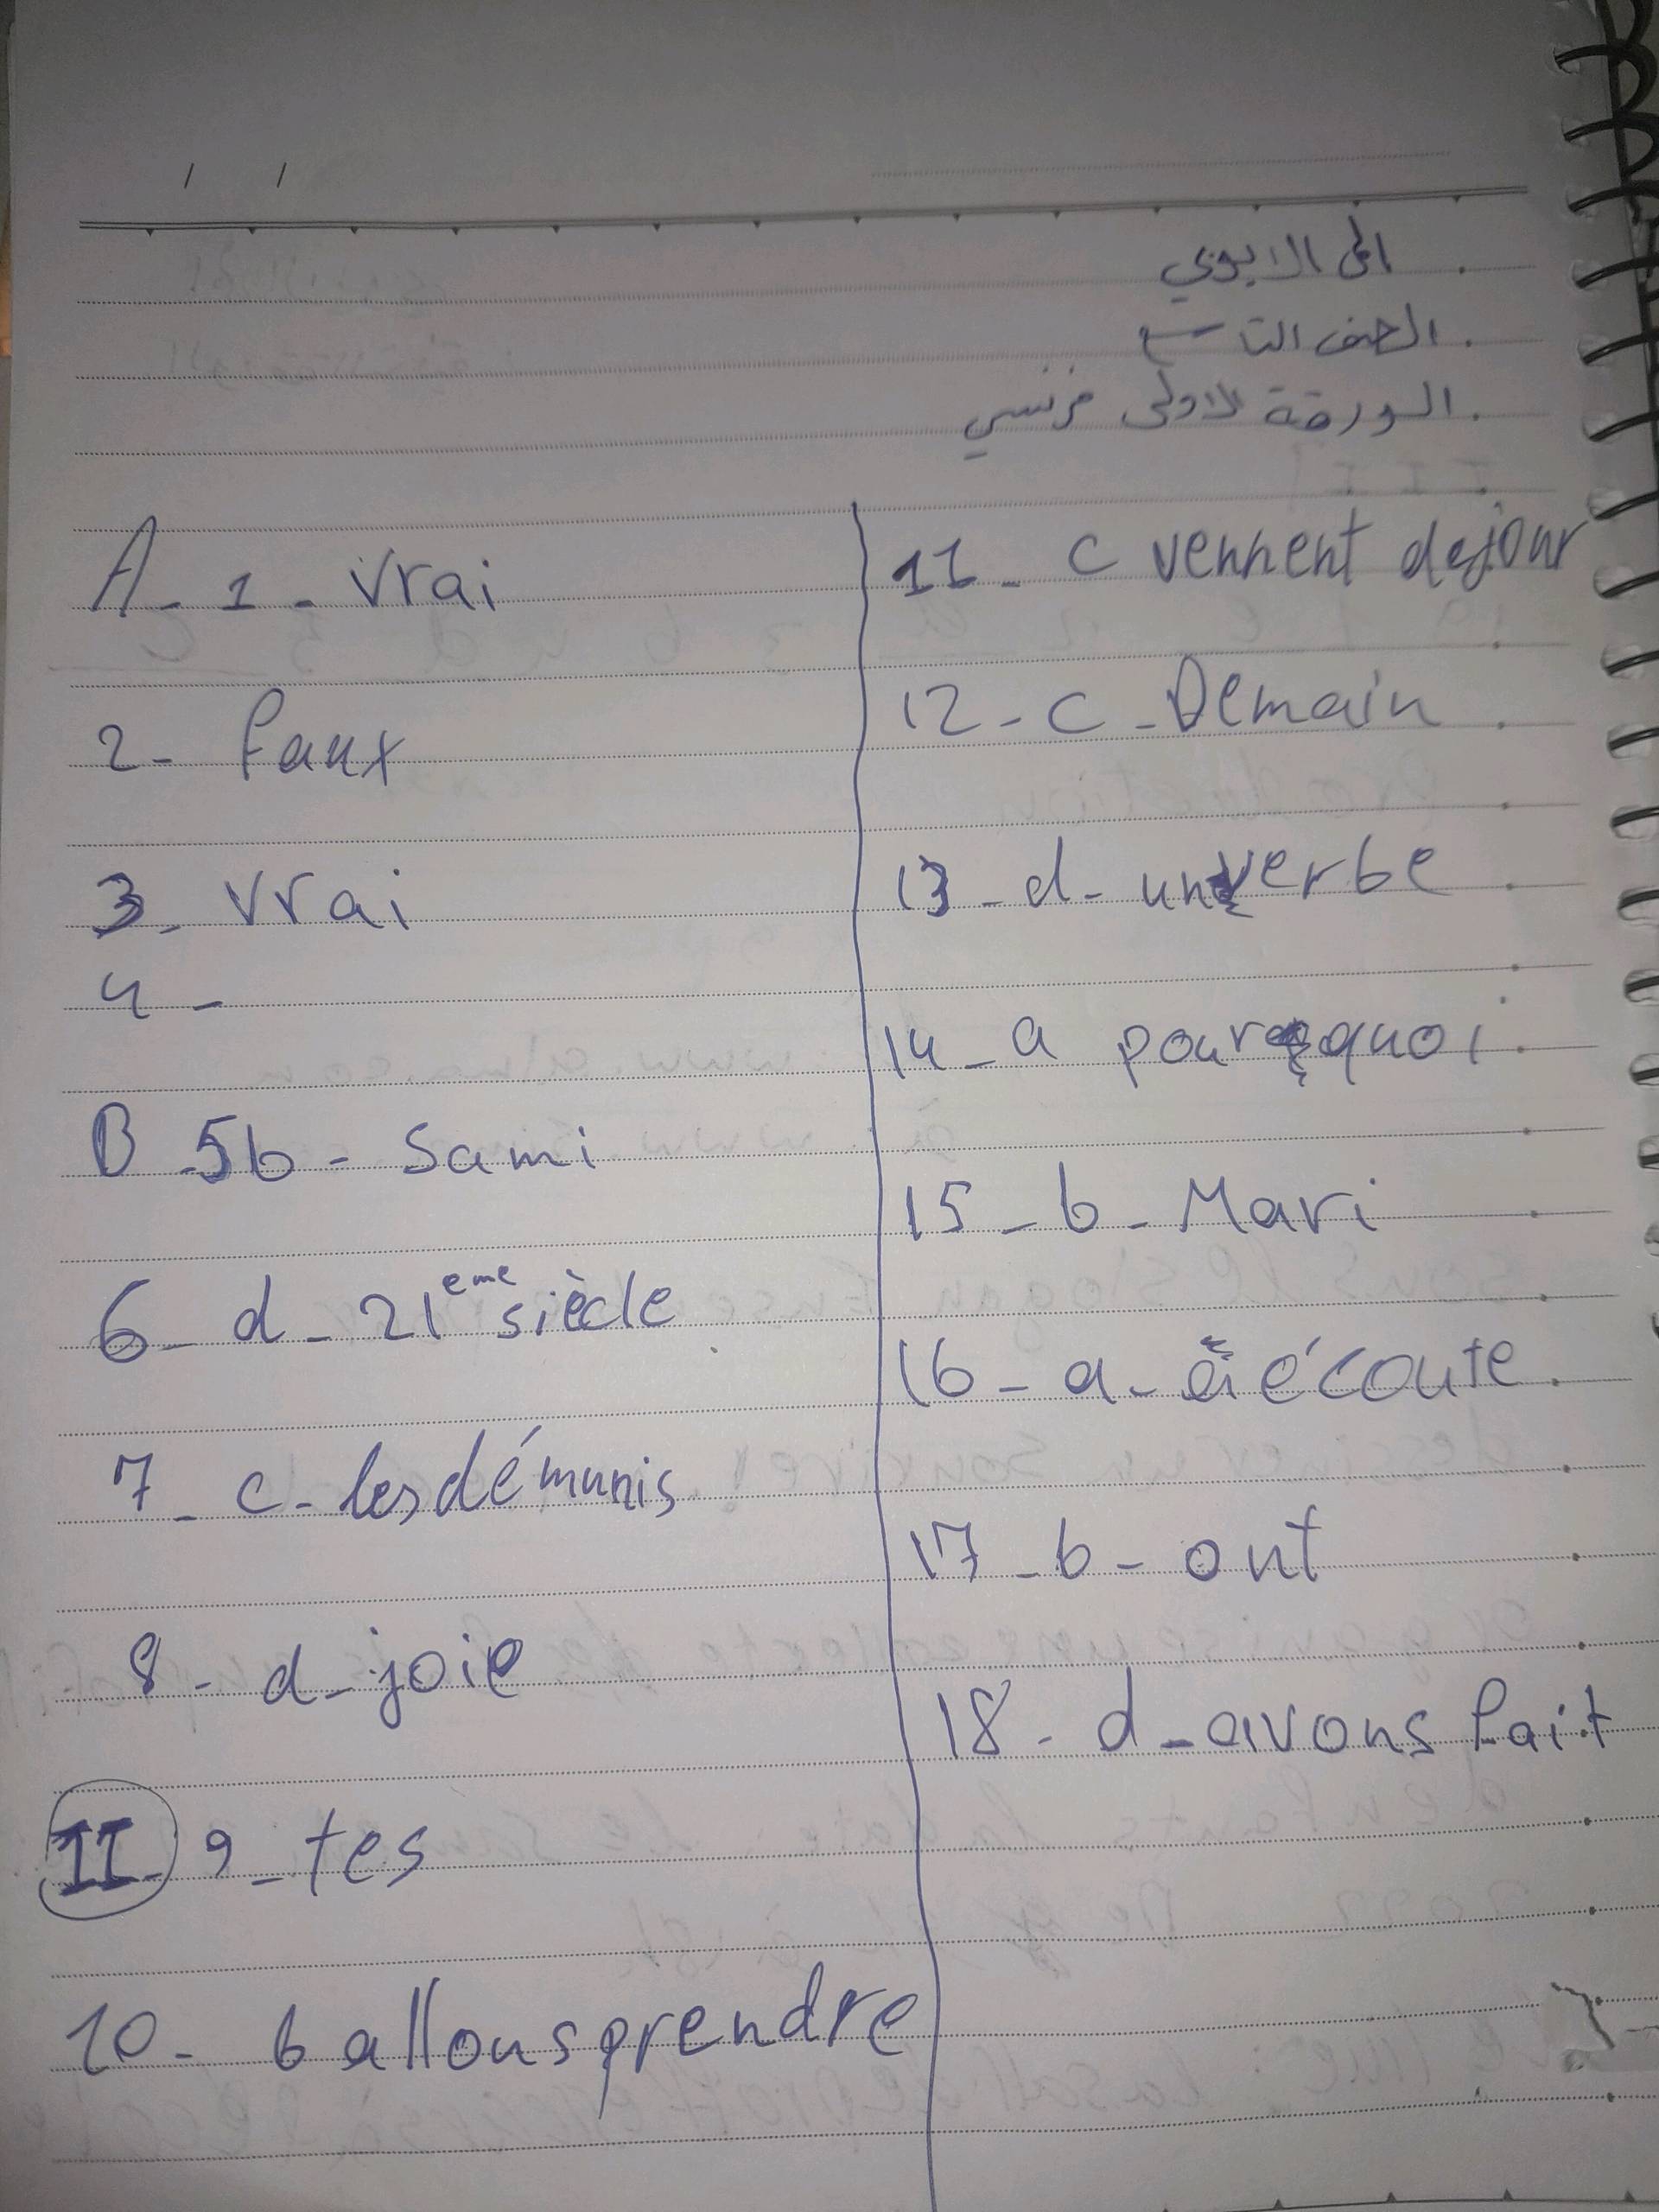 المى الابوي
. الصف التاسع
. الورقة الاولى فرنسي
A - 1 - vrai
2 - faux
3 - vrai
4 -
B - 5 b - Sami
6 - d - 21 eme siècle
7 - c - les démunis
8 - d - joie
II - 9 - tes
10 - b allons prendre
11 - c vennent de jour
12 - c - Demain
13 - d - un verbe
14 - a pourquoi
15 - b - Mari
16 - a - écoute
17 - b - ont
18 - d - avons fait